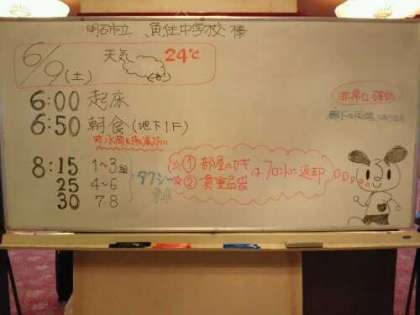 明石市立 魚住中学校 様
6/9(土) 天気 24℃
6:00 起床
6:50 朝食(地下1F)
8:15 1〜3組
25 4〜6
30 7 8
タクシー
① 部屋のカギ
② 貴重品袋
は フロントに返却